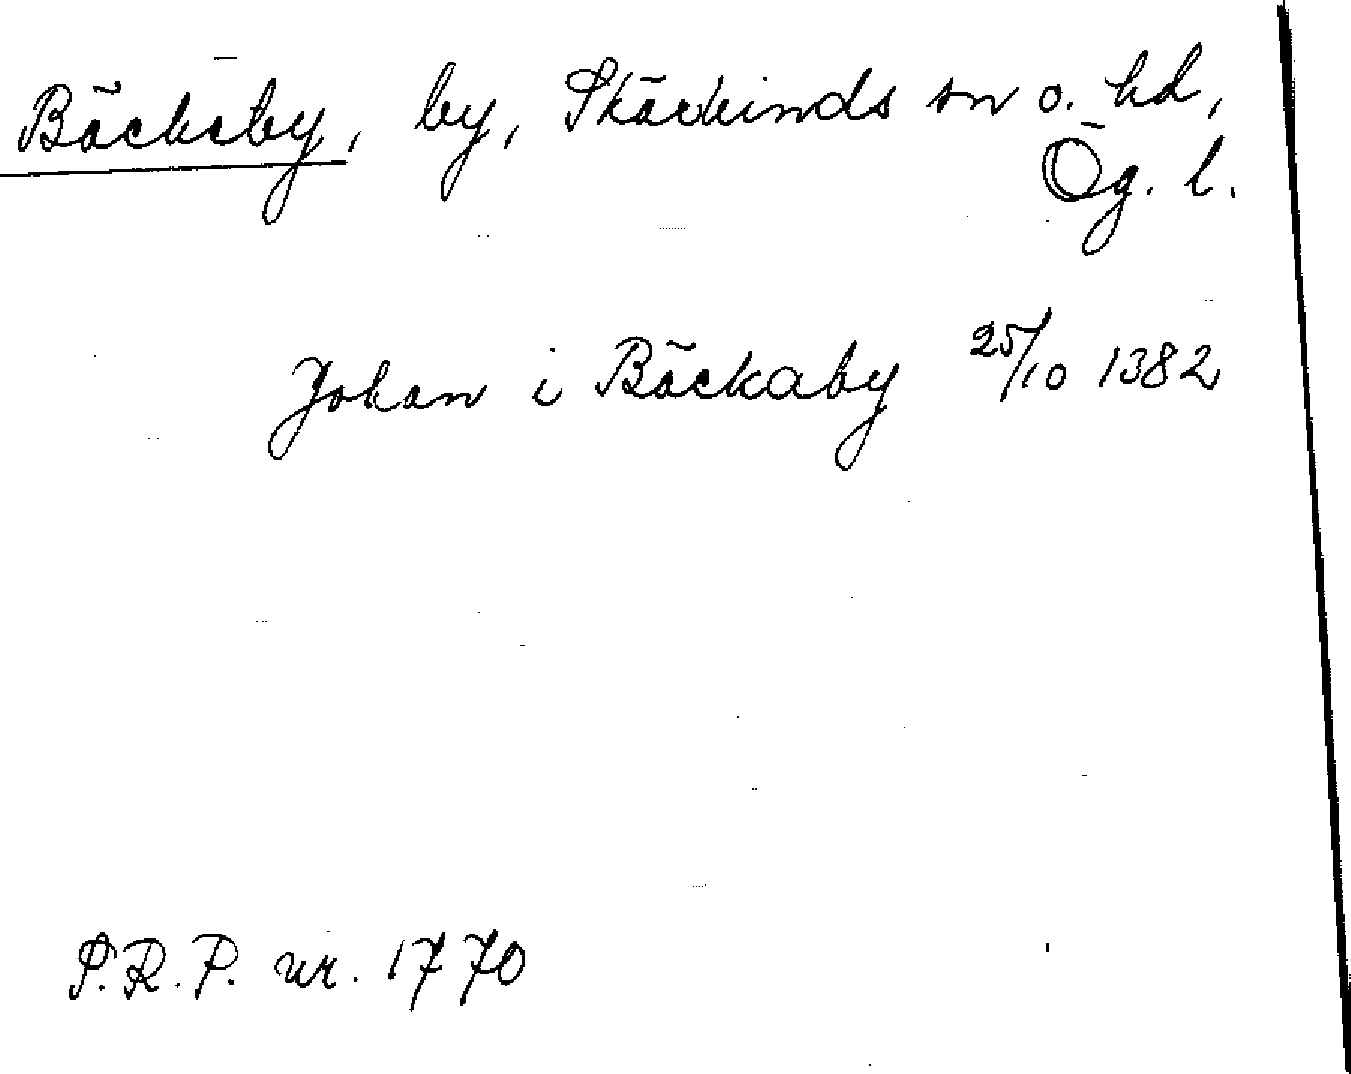 Bäckeby, by, Skärkinds sn o. hd,
Ög. l.
Johan i Bäckaby 25/10 1382
P.R.P. nr. 1770